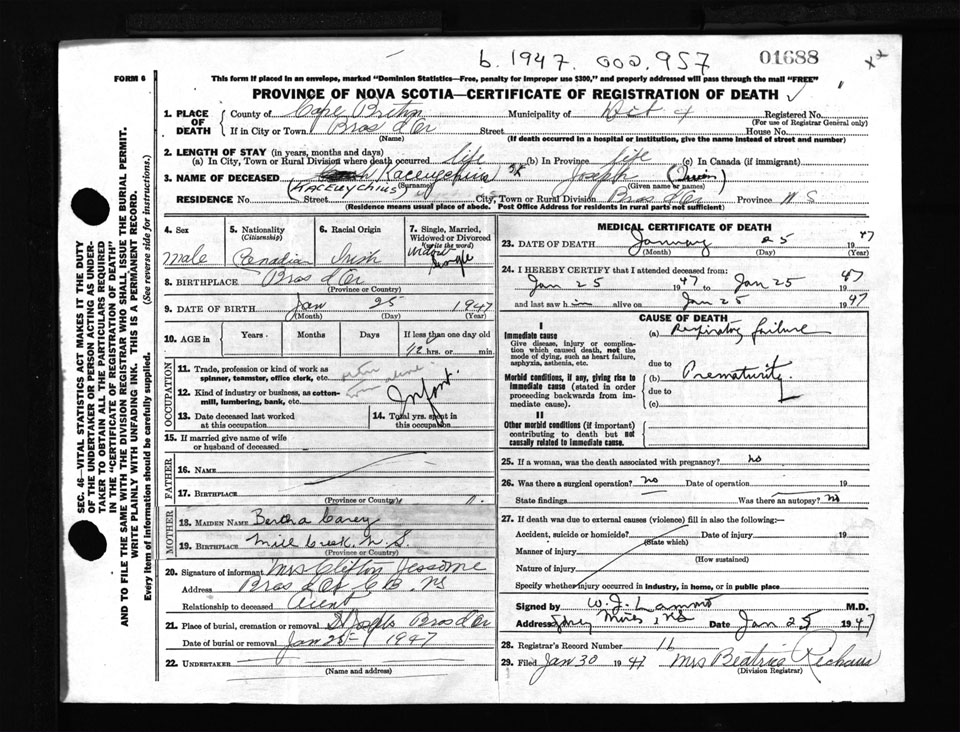 b. 1947. 000. 957
01688
FORM 6
This form if placed in an envelope, marked "Dominion Statistics—Free, penalty for improper use $300," and properly addressed will pass through the mail "FREE"
PROVINCE OF NOVA SCOTIA—CERTIFICATE OF REGISTRATION OF DEATH
1. PLACE OF DEATH
County of Cape Breton Municipality of Dist 4 Registered No.
(For use of Registrar General only)
If in City or Town Bras d'Or Street House No.
(Name) (If death occurred in a hospital or institution, give the name instead of street and number)
2. LENGTH OF STAY (in years, months and days)
(a) In City, Town or Rural Division where death occurred life (b) In Province life (c) In Canada (if immigrant)
3. NAME OF DECEASED Joseph (Twin)
(Surname) (Given name or names)
(KACEUYCHIUS)
RESIDENCE No. Street City, Town or Rural Division Bras d'Or Province N S
(Residence means usual place of abode. Post Office Address for residents in rural parts not sufficient)
4. Sex
male
5. Nationality
(Citizenship)
Canadian
6. Racial Origin
Irish
7. Single, Married, Widowed or Divorced
(write the word)
single
8. BIRTHPLACE Bras d'Or
(Province or Country)
9. DATE OF BIRTH Jan 25 1947
(Month) (Day) (Year)
10. AGE in Years Months Days If less than one day old
12 hrs. or min.
OCCUPATION
11. Trade, profession or kind of work as spinner, teamster, office clerk, etc.
12. Kind of industry or business, as cotton-mill, lumbering, bank, etc.
Infant.
13. Date deceased last worked at this occupation
14. Total yrs. spent in this occupation
15. If married give name of wife or husband of deceased
FATHER
16. NAME
17. BIRTHPLACE
(Province or Country)
MOTHER
18. MAIDEN NAME Bertha Carey
19. BIRTHPLACE Mill Creek, N.S.
(Province or Country)
20. Signature of informant Mrs Clifton Jessome
Address Bras d'Or C B. NS
Relationship to deceased Aunt
21. Place of burial, cremation or removal St Josephs Bras d'Or
Date of burial or removal Jan 25 - 1947
22. UNDERTAKER
(Name and Address)
MEDICAL CERTIFICATE OF DEATH
23. DATE OF DEATH January 25 1947
(Month) (Day) (Year)
24. I HEREBY CERTIFY that I attended deceased from:
Jan 25 1947 to Jan 25 1947
and last saw him alive on Jan 25 1947
CAUSE OF DEATH
I
Immediate cause
Give disease, injury or complication which caused death, not the mode of dying, such as heart failure, asphyxia, asthenia, etc.
(a) Respiratory failure
due to
Morbid conditions, if any, giving rise to immediate cause (stated in order proceeding backwards from immediate cause).
(b) Prematurity.
due to
(c)
II
Other morbid conditions (if important) contributing to death but not causally related to immediate cause.
25. If a woman, was the death associated with pregnancy? no
26. Was there a surgical operation? no Date of operation 19
State findings Was there an autopsy? no
27. If death was due to external causes (violence) fill in also the following:
Accident, suicide or homicide? Date of injury 19
(State which)
Manner of injury
(How sustained)
Nature of injury
Specify whether injury occurred in industry, in home, or in public place
Signed by W. J. Lamont M.D.
Address Sydney Mines, NS Date Jan 25 1947
28. Registrar's Record Number 16
29. Filed Jan 30 1947 Mrs Beatrice
(Division Registrar)
SEC. 46—VITAL STATISTICS ACT MAKES IT THE DUTY
OF THE UNDERTAKER OR PERSON ACTING AS UNDER-
TAKER TO OBTAIN ALL THE PARTICULARS REQUIRED
IN THE "CERTIFICATE OF REGISTRATION OF DEATH"
AND TO FILE THE SAME WITH THE DIVISION REGISTRAR WHO SHALL ISSUE THE BURIAL PERMIT.
WRITE PLAINLY WITH UNFADING INK. THIS IS A PERMANENT RECORD.
Every item of information should be carefully supplied. (See reverse side for instructions.)